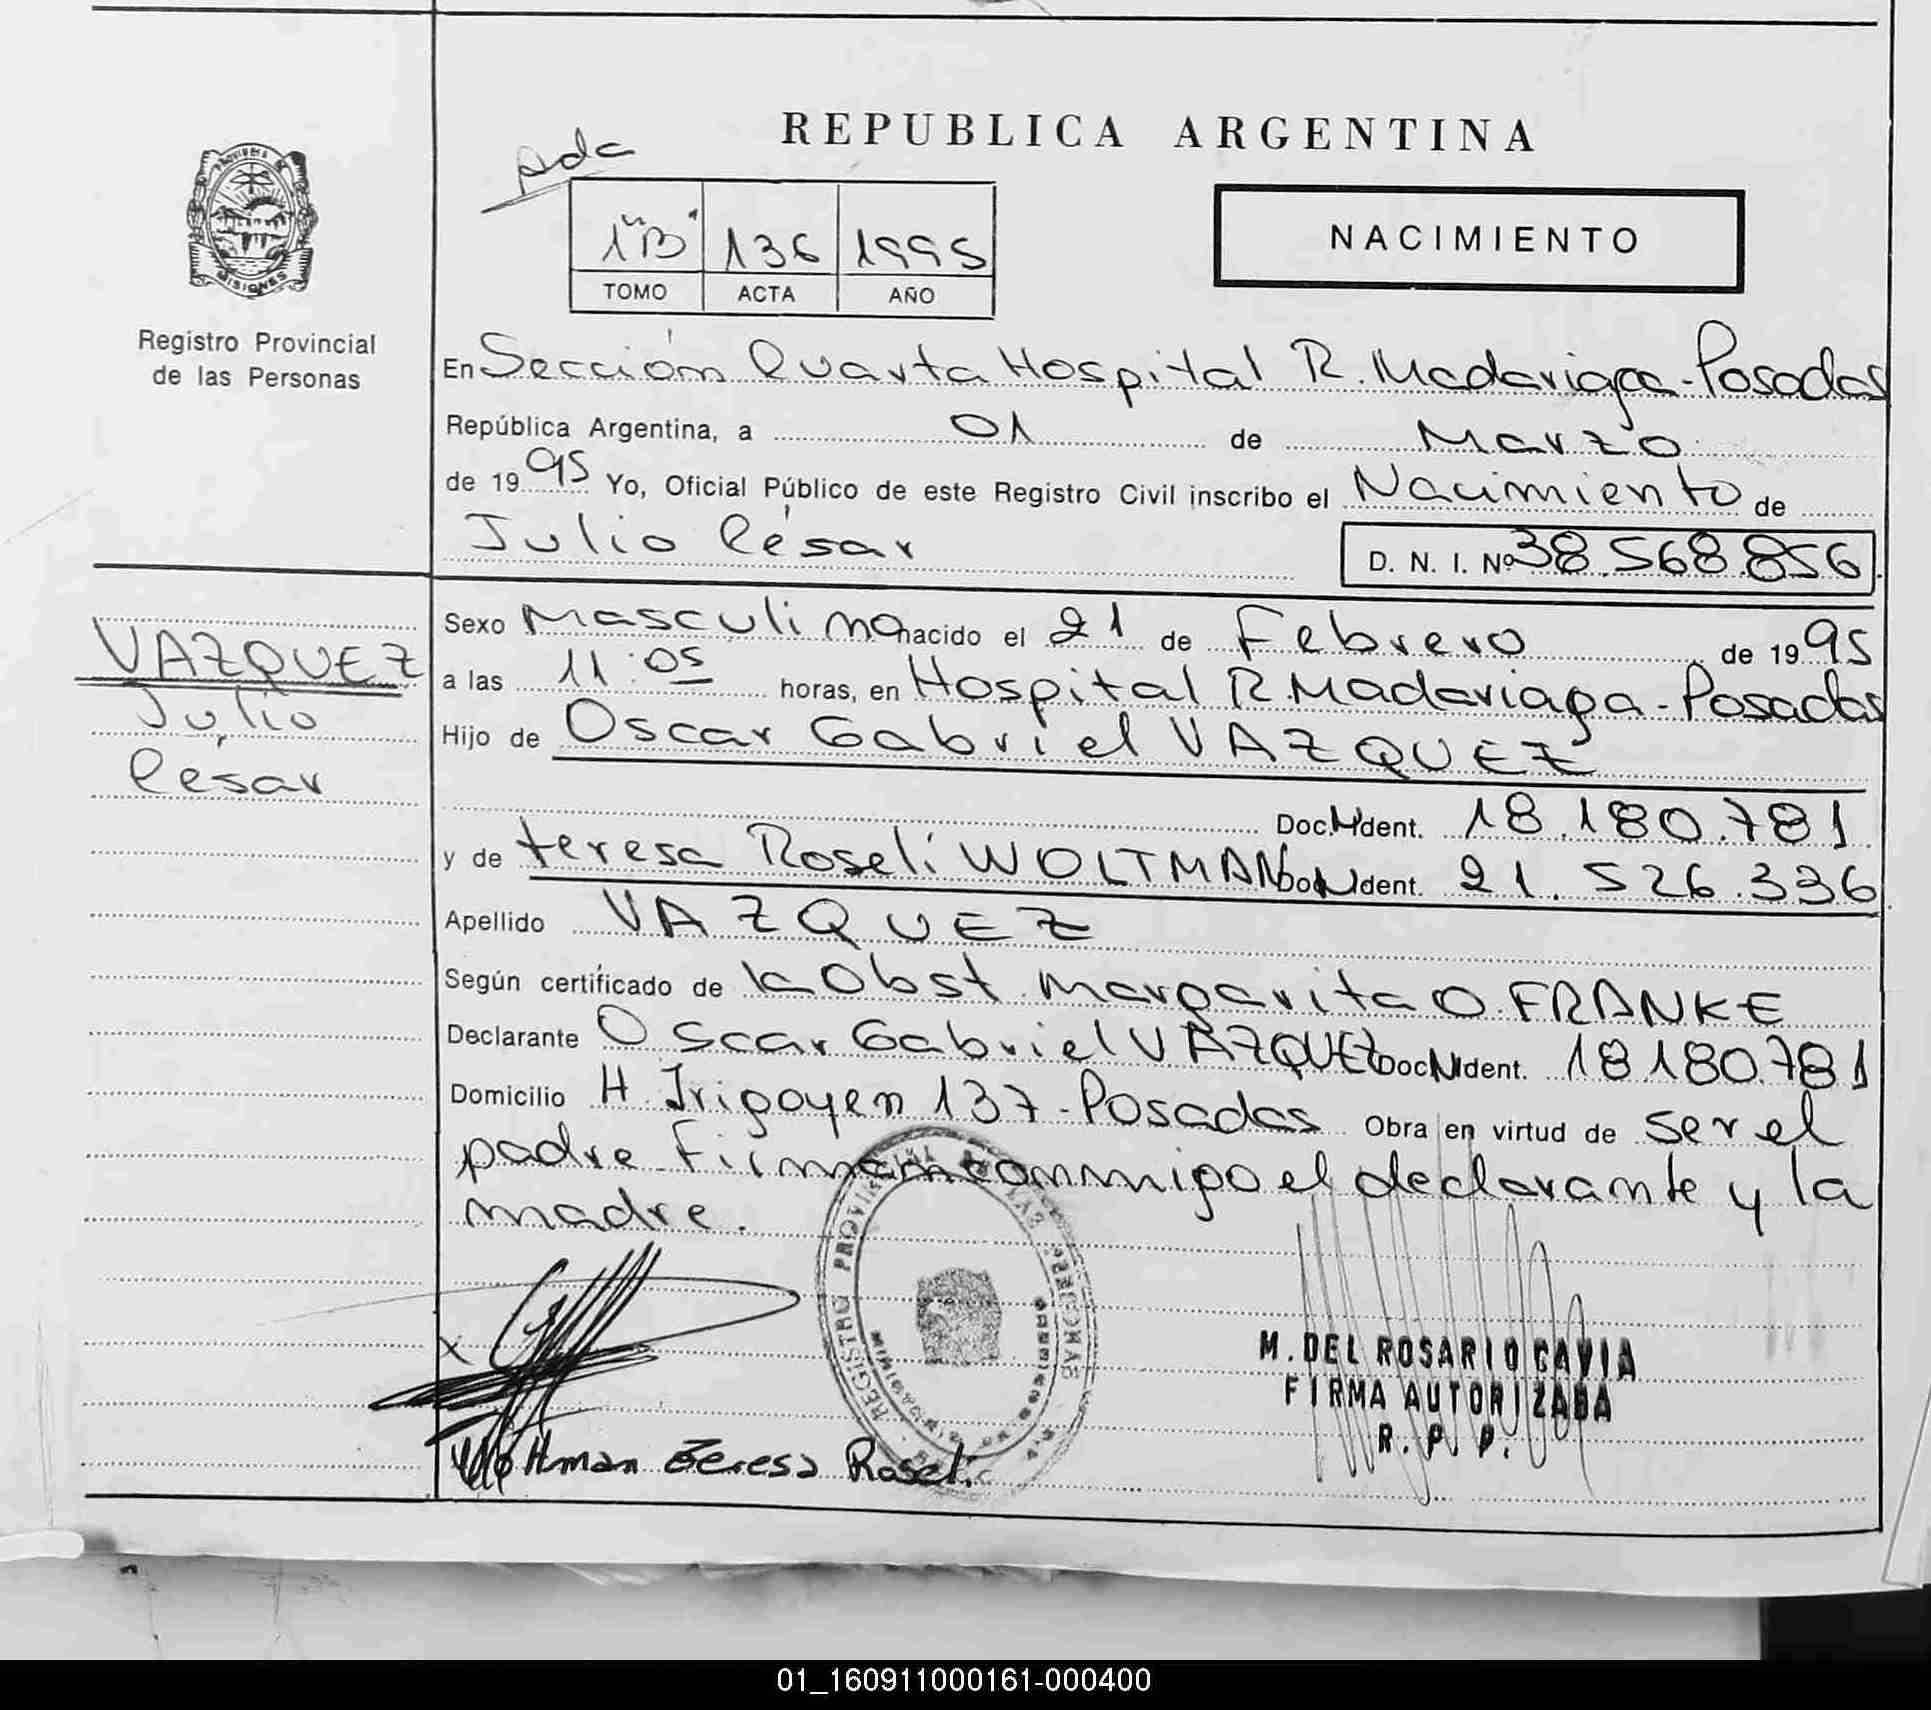 REPUBLICA ARGENTINA
pda
1"B" 136 1995
TOMO ACTA AÑO
NACIMIENTO
MISIONES
Registro Provincial
de las Personas
En Sección Cuarta Hospital R. Madariaga-Posadas
República Argentina, a 01 de Marzo
de 1995 Yo, Oficial Público de este Registro Civil inscribo el Nacimiento de
Julio César
D. N. I. Nº 38.568.856
VAZQUEZ
Julio
César
Sexo Masculino nacido el 21 de Febrero de 1995
a las 11:05 horas, en Hospital R. Madariaga-Posadas
Hijo de Oscar Gabriel VAZQUEZ
Doc. Ident. 18.180.781
y de teresa Roseli WOLTMAN Doc. Ident. 21.526.336
Apellido VAZQUEZ
Según certificado de la Obst. Margarita O. FRANKE
Declarante Oscar Gabriel VAZQUEZ Doc. Ident. 18.180.781
Domicilio H. Irigoyen 137-Posadas Obra en virtud de ser el
padre Firman conmigo el declarante y la
madre.
REGISTRO PROVINCIAL DE LAS PERSONAS
M. DEL ROSARIO CAVIA
FIRMA AUTORIZADA
R. P. P.
Woltman Teresa Roseli
01_160911000161-000400